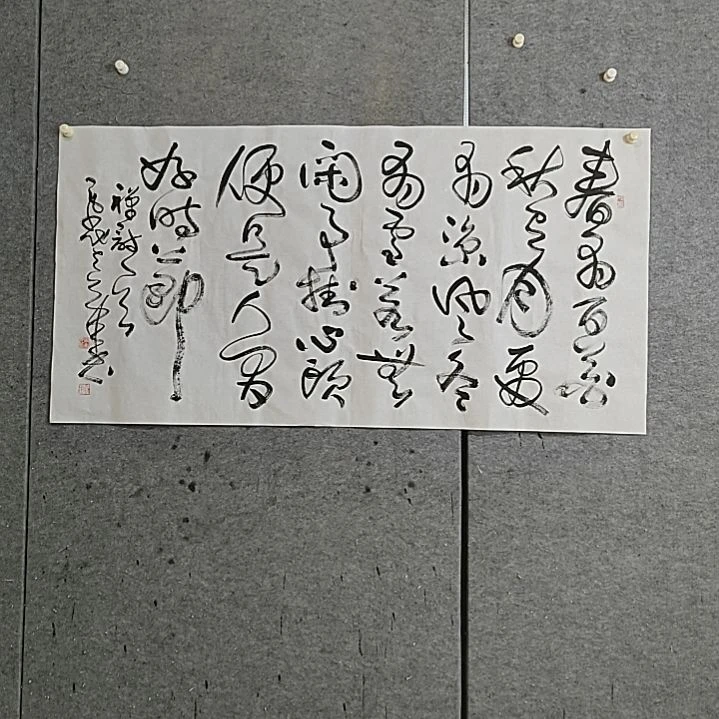 春有百花
秋有月夏
有涼風冬
有雪若無
閒事掛心頭
便是人間
好時節
禪詩一首